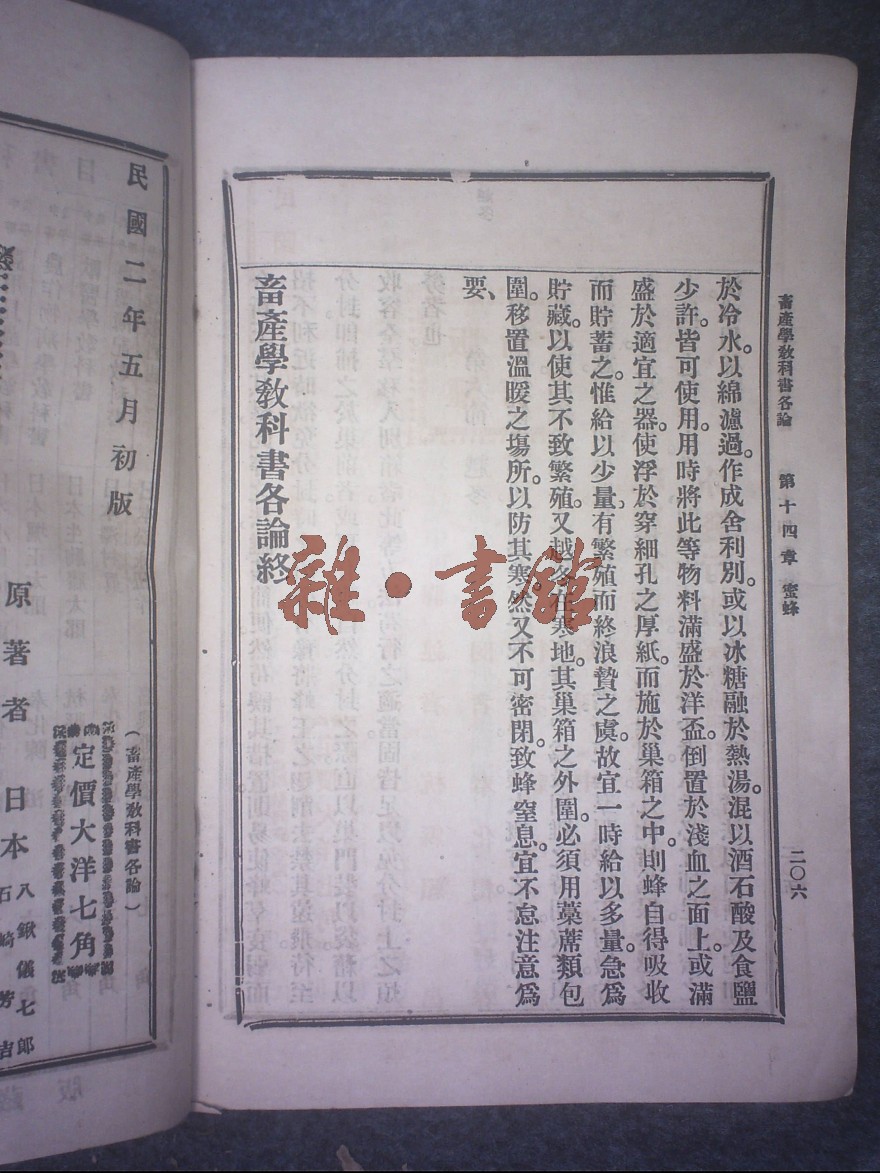 畜產學教科書各論　第十四章　蜜蜂　二〇六
於冷水。以綿濾過。作成舍利別。或以冰糖融於熱湯。混以酒石酸及食鹽
少許。皆可使用。用時將此等物料滿盛於洋盃。倒置於淺血之面上。或滿
盛於適宜之器。使浮於穿細孔之厚紙。而施於巢箱之中。則蜂自得吸收
而貯蓄之。惟給以少量。有繁殖而終浪贄之虞。故宜一時給以多量。急爲
貯藏。以使其不致繁殖。又越冬在寒地。其巢箱之外圍。必須用藁蓆類包
圍。移置溫暖之塲所。以防其寒。然又不可密閉。致蜂窒息。宜不怠注意爲
要、
畜產學教科書各論終
雜·書館
民國二年五月初版
（畜產學教科書各論）
定價大洋七角
原著者　日本　八鍬儀七郎
石崎芳吉